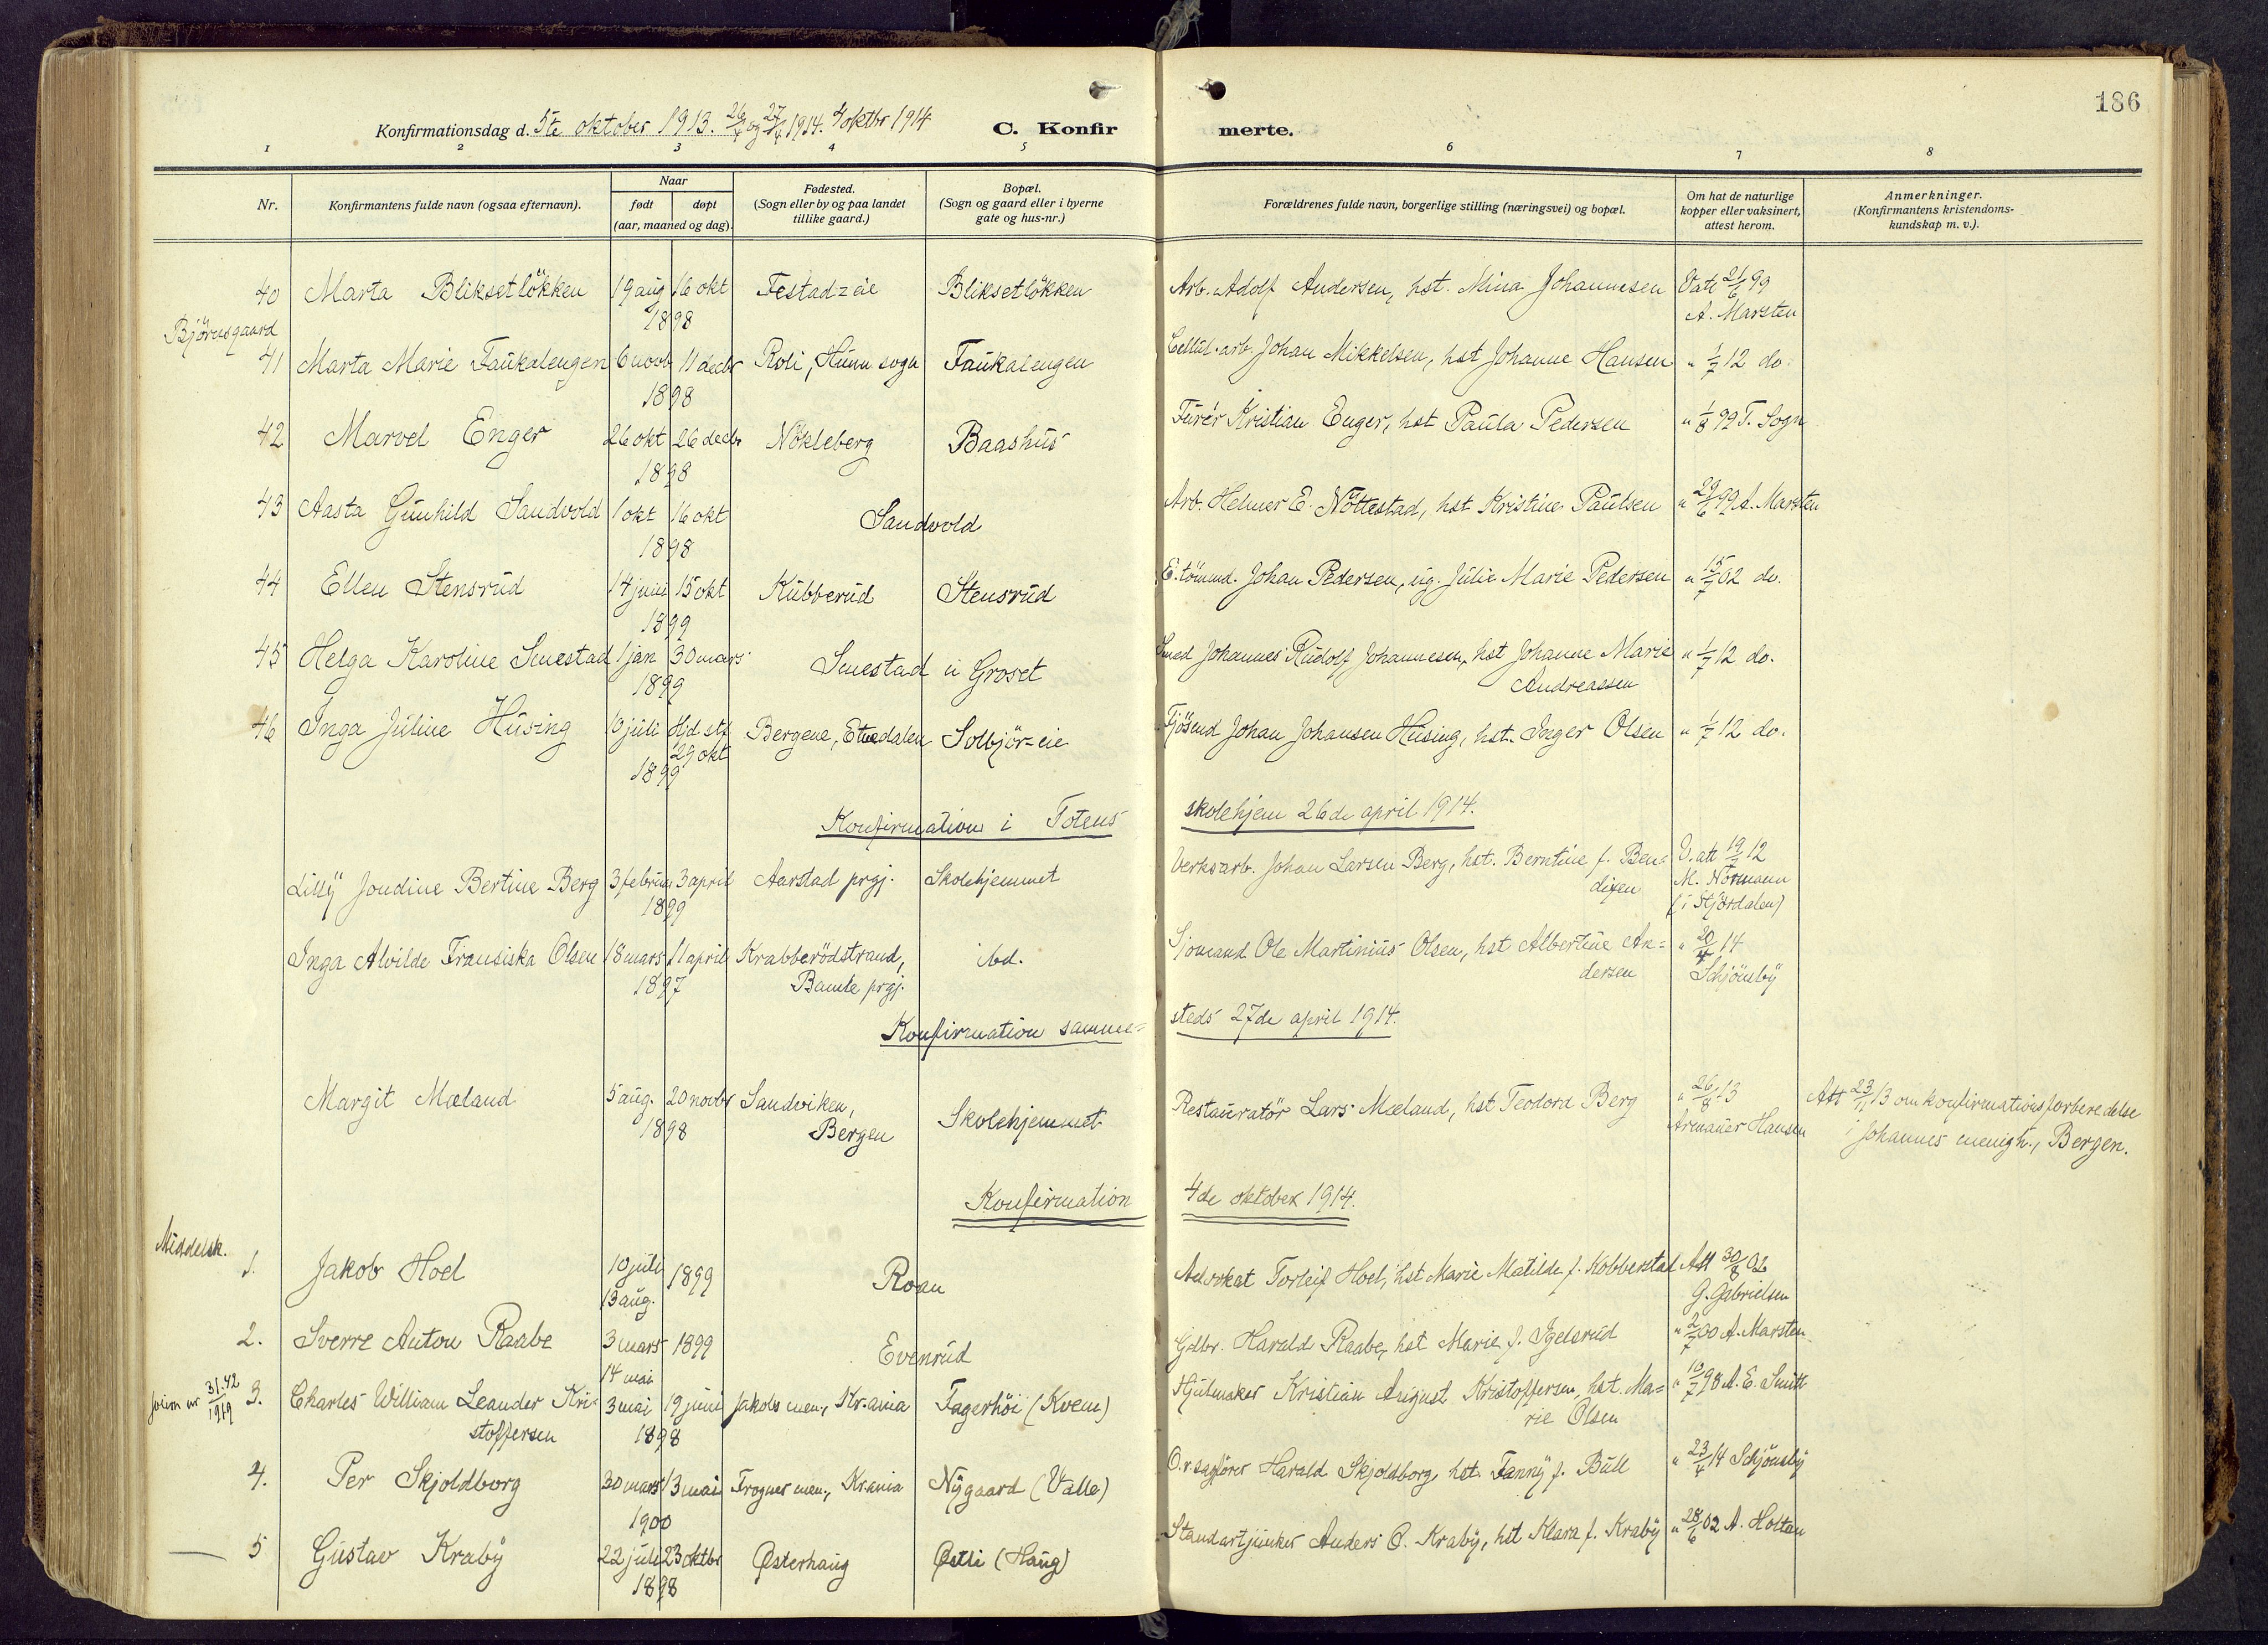 186
Konfirmationsdag d. 5te oktober 1913. 26/4 og 27/4 1914. 4 oktbr 1914
C. Konfirmerte.
1 2 3 4 5 6 7 8
Nr.
Konfirmantens fulde navn (ogsaa efternavn).
Naar
født
døpt
(aar, maaned og dag).
Fødested.
(Sogn eller by og paa landet
tillike gaard.)
Bopæl.
(Sogn og gaard eller i byerne
gate og hus-nr.)
Forældrenes fulde navn, borgerlige stilling (næringsvei) og bopæl.
Om hat de naturlige
kopper eller vaksinert,
attest herom.
Anmerkninger.
(Konfirmantens kristendoms-
kundskap m. v.).
40 Marta Bliksetløkken 19 aug 16 okt Festadeie Bliksetløkken Arb. Adolf Andersen, hst. Mina Johannesen Vatt 21/6 99
1898 A. Marsten
Bjørnsgaard
41 Marta Marie Faukalengen 6 novb 11 decbr Roli, Hunn sogn Faukalengen Cellul. arb. Johan Mikkelsen, hst Johanne Hansen " 1/7 12 do.
1898
42 Marvel Enger 26 okt 26 decbr Nøkleberg Baashus Furér Kristian Enger, hst Paula Pedersen " 1/8 99 T. Sogn
1898
43 Aasta Gunhild Sandvold 1 okt 16 okt Sandvold Arb. Helmer E. Nøttestad, hst Kristine Paulsen " 29/6 99 A. Marsten
1898
44 Ellen Stensrud 14 juni 15 okt Kubberud Stensrud E. tømmd. Johan Pedersen, ug. Julie Marie Pedersen " 15/7 02 do.
1899
45 Helga Karoline Smestad 1 jan 30 mars Smestad u Groset Smed Johannes Rudolf Johannesen, hst Johanne Marie " 1/7 12 do.
1899 Andreassen
46 Inga Juline Husing 10 juli Hjd. stf. Bergene, Etnedalen Solbjør-eie Fjøsmd Johan Johansen Husing, hst. Inger Olsen " 1/7 12 do.
29 okt
1899
Konfirmation i Totens skolehjem 26de april 1914.
Lilly Jondine Bertine Berg 3 februar 3 april Aarstad prgj. Skolehjemmet Verksarb. Johan Larsen Berg, hst. Berntine f. Ben= V. att 19/ 12
1899 dixen M. Normann
(i Stjørdalen)
Inga Alvilde Fransiska Olsen 18 mars 11 april Krabberødstrand, ibd. Sjømand Ole Martinius Olsen, hst Albertine An= " 20/4 14
1897 Bamle prgj. dersen Schjønsby
Konfirmation sammesteds 27de april 1914.
Margit Mæland 5 aug. 20 novbr Sandviken, Skolehjemmet Restauratør Lars Mæland, hst Teodora Berg " 26/8 13 Att 23/11 13 om konfirmationsforberedelse
1898 Bergen Armauer Hansen i Johannes menigh., Bergen.
Konfirmation 4de oktober 1914.
Middelsk.
1. Jakob Hoel 10 juli 1899 Roau Advokat Torleif Hoel, hst Marie Matilde f. Kobberstad Att 30/8 02
13 aug. G. Gabrielsen
2. Sverre Anton Raabe 3 mars 1899 Evenrud Gdbr. Harald Raabe, hst Marie f. Igelsrud " 2/7 00 A. Marsten
14 mai
31.42/1919 3. Charles William Leander Kri- 3 mai 19 juni Jakobs men., Kr.ania Fagerhøi (Kvem) Hjulmaker Kristian August Kristoffersen, hst. Ma= 98 A. E. Smitt
stoffersen 1898 rie Olsen
4. Per Skjoldborg 30 mars 13 mai Frogner men., Kr.ania Nygaard (Valle) O.r.sagfører Harald Skjoldborg, hst Fanny f. Bull " 23/4 14 Schjønsby
1900
5 Gustav Kraby 22 juli 23 oktbr Østerhaug Østli (Haug) Standartjunker Anders O. Kraby, hst Klara f. Kraby " 28/6 02 A. Holtan
1898